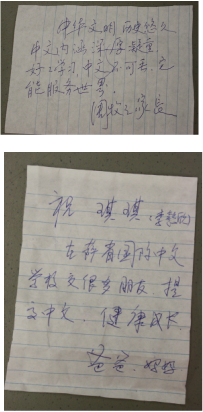 中华文明 历史悠久
中文内涵 深厚凝重
好好学习 中文不可丢 它
能服务世界
家长
祝 琪琪
在静 国的中文
学校交很多朋友 提
高中文 健康成长
爸爸 妈妈